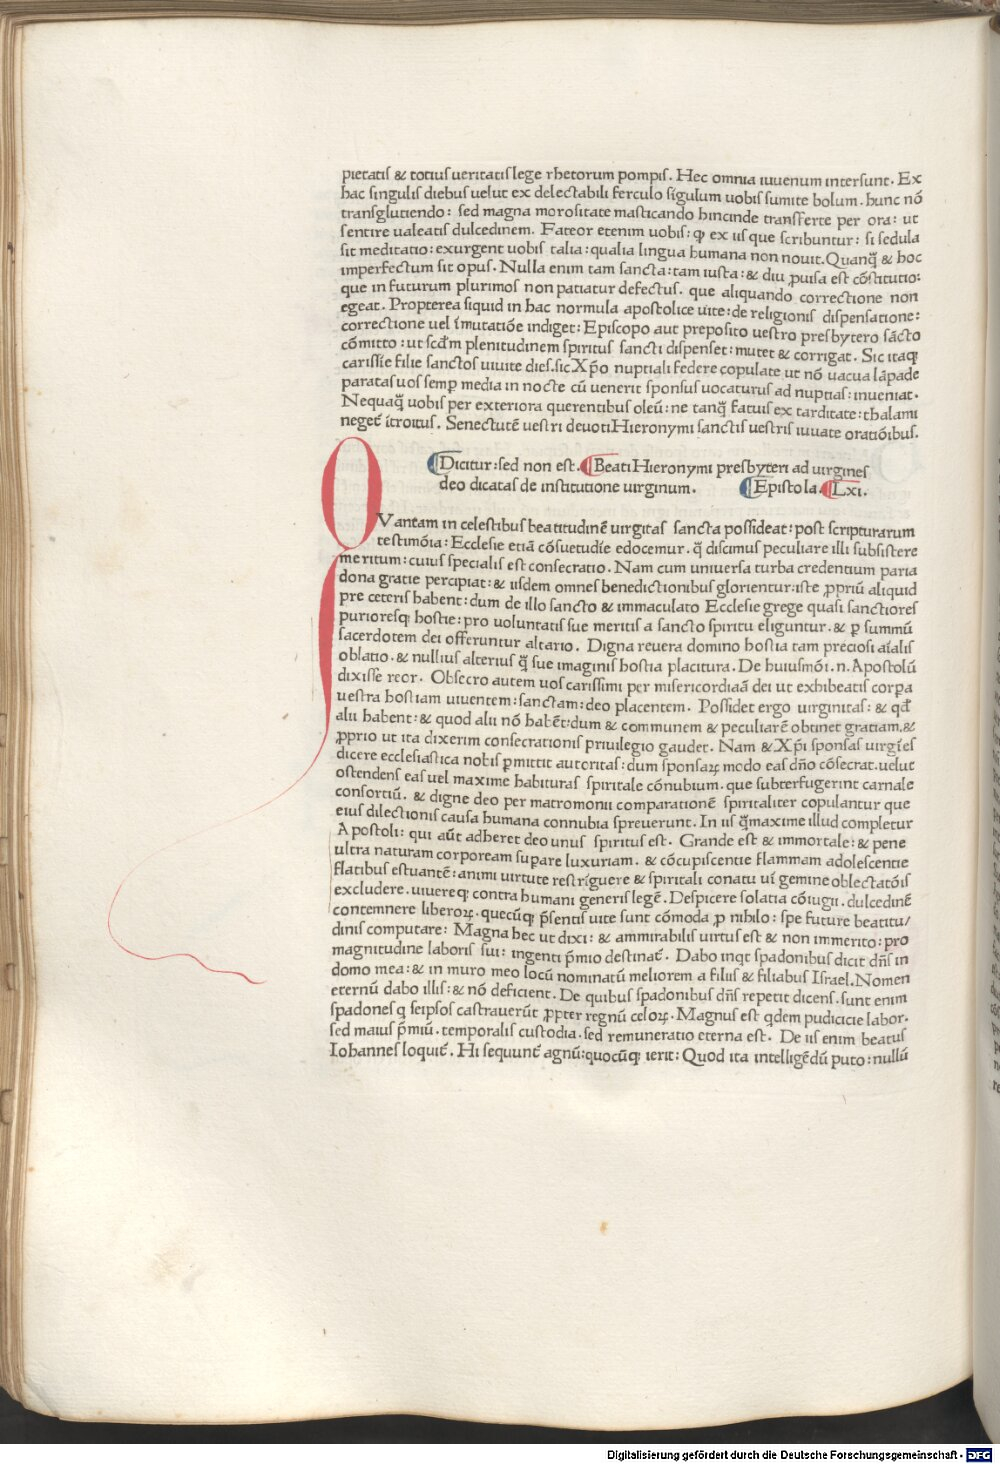 pietatis & totius ueritatis lege rhetorum pompis. Hec omnia iuuenum intersunt. Ex
hac singulis diebus uelut ex delectabili ferculo sigulum uobis sumite bolum. hunc nō
transglutiendo: sed magna morositate masticando hincinde transferte per ora: ut
sentire ualeatis dulcedinem. Fateor etenim uobis: ꝙ ex iis que scribuntur: si sedula
sit meditatio: exurgent uobis talia: qualia lingua humana non nouit. Quanq̄ & hoc
imperfectum sit opus. Nulla enim tam sancta: tam iusta: & diu ꝓuisa est cōstitutio:
que in futurum plurimos non patiatur defectus. que aliquando correctione non
egeat. Propterea siquid in hac normula apostolice uite: de religionis dispensatione:
correctione uel īmutatiōe indiget: Episcopo aut preposito uestro presbytero sācto
cōmitto: ut scd̄m plenitudinem spiritus sancti dispenset: mutet & corrigat. Sic itaqꝫ
carissīe filie sanctos uiuite dies. sic Xp̄o nuptiali federe copulate ut nō uacua lāpade
paratas uos semꝑ media in nocte cū uenerit sponsus uocaturus ad nuptias: inueniat.
Nequaq̄ uobis per exteriora querentibus oleū: ne tanq̄ fatuis ex tarditate: thalami
neget̄ ītroitus. Senectutē uestri deuoti Hieronymi sanctis uestris iuuate oratiōibus.
Dicitur: sed non est. Beati Hieronymi presbyteri ad uirgines
deo dicatas de institutione uirginum. Epistola. Lxi.
QVantam in celestibus beatitudinē uirgitas sancta possideat: post scripturarum
testimōia: Ecclesie etiā cōsuetudīe edocemur. q̄ discimus peculiare illi subsistere
meritum: cuius specialis est consecratio. Nam cum uniuersa turba credentium paria
dona gratie percipiat: & iisdem omnes benedictionibus glorientur: iste ꝓpriū aliquid
pre ceteris habent: dum de illo sancto & immaculato Ecclesie grege quasi sanctiores
purioresqꝫ hostie: pro uoluntatis sue meritis a sancto spiritu eliguntur. & ꝑ summū
sacerdotem dei offeruntur altario. Digna reuera domino hostia tam preciosi aīalis
oblatio. & nullius alterius q̄ sue imaginis hostia placitura. De huiusmōi .n. Apostolū
dixisse reor. Obsecro autem uos carissimi per misericordiaā dei ut exhibeatis corpa
uestra hostiam uiuentem: sanctam: deo placentem. Possidet ergo uirginitas: & qd̄
alii habent: & quod alii nō habēt: dum & communem & peculiarē obtinet gratiam. &
ꝓprio ut ita dixerim consecrationis priuilegio gaudet. Nam & Xp̄i sponsas uirgīes
dicere ecclesiastica nobis ꝑmittit autoritas: dum sponsaꝝ modo eas dn̄o cōsecrat. uelut
ostendens eas uel maxime habituras spiritale cōnubium. que subterfugerint carnale
consortiū. & digne deo per matromonii comparationē spiritaliter copulantur que
eius dilectionis causa humana connubia spreuerunt. In iis q̄maxime illud completur
Apostoli: qui aūt adheret deo unus spiritus est. Grande est & immortale: & pene
ultra naturam corpoream suꝑare luxuriam. & cōcupiscentie flammam adolescentie
flatibus estuantē: animi uirtute restrīguere & spiritali conatu uī gemine oblectatōis
excludere. uiuereqꝫ contra humani generis legē. Despicere solatia cōiugii. dulcedinē
contemnere liberoꝝ. quecūqꝫ p̄sentis uite sunt cōmoda ꝓ nihilo: spe future beatitu/
dinis computare: Magna hec ut dixi: & ammirabilis uirtus est & non immerito: pro
magnitudine laboris sui: ingenti p̄mio destinat̄. Dabo inqt spadonibus dicit dn̄s in
domo mea: & in muro meo locū nominatū meliorem a filiis & filiabus Israel. Nomen
eternū dabo illis: & nō deficient. De quibus spadonibus dn̄s repetit dicens. sunt enim
spadones q seipsos castrauerūt ꝓpter regnū celoꝝ. Magnus est qdem pudicicie labor.
sed maius p̄miū. temporalis custodia. sed remuneratio eterna est. De iis enim beatus
Iohannes loquit̄. Hi sequunt̄ agnū: quocūqꝫ ierit: Quod ita intelligēdū puto: nullū
Digitalisierung gefördert durch die Deutsche Forschungsgemeinschaft - DFG